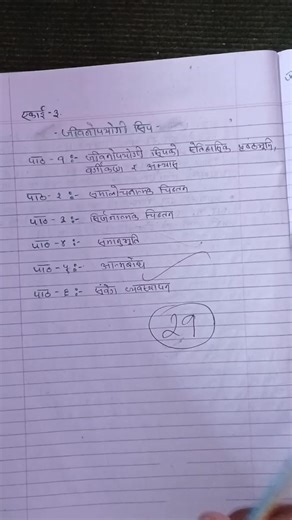 एकाई-३.
- जीवनोपयोगी सिप -
पाठ - १ :- जीवनोपयोगी सिपको ऐतिहासिक पृष्ठभूमि,
वर्गीकरण र अभ्यास
पाठ - २ :- समालोचनात्मक चिन्तन
पाठ - ३ :- सिर्जनात्मक चिन्तन
पाठ - ४ :- समानुभूति
पाठ - ५ :- आत्मबोध
पाठ - ६ :- संवेग व्यवस्थापन
29